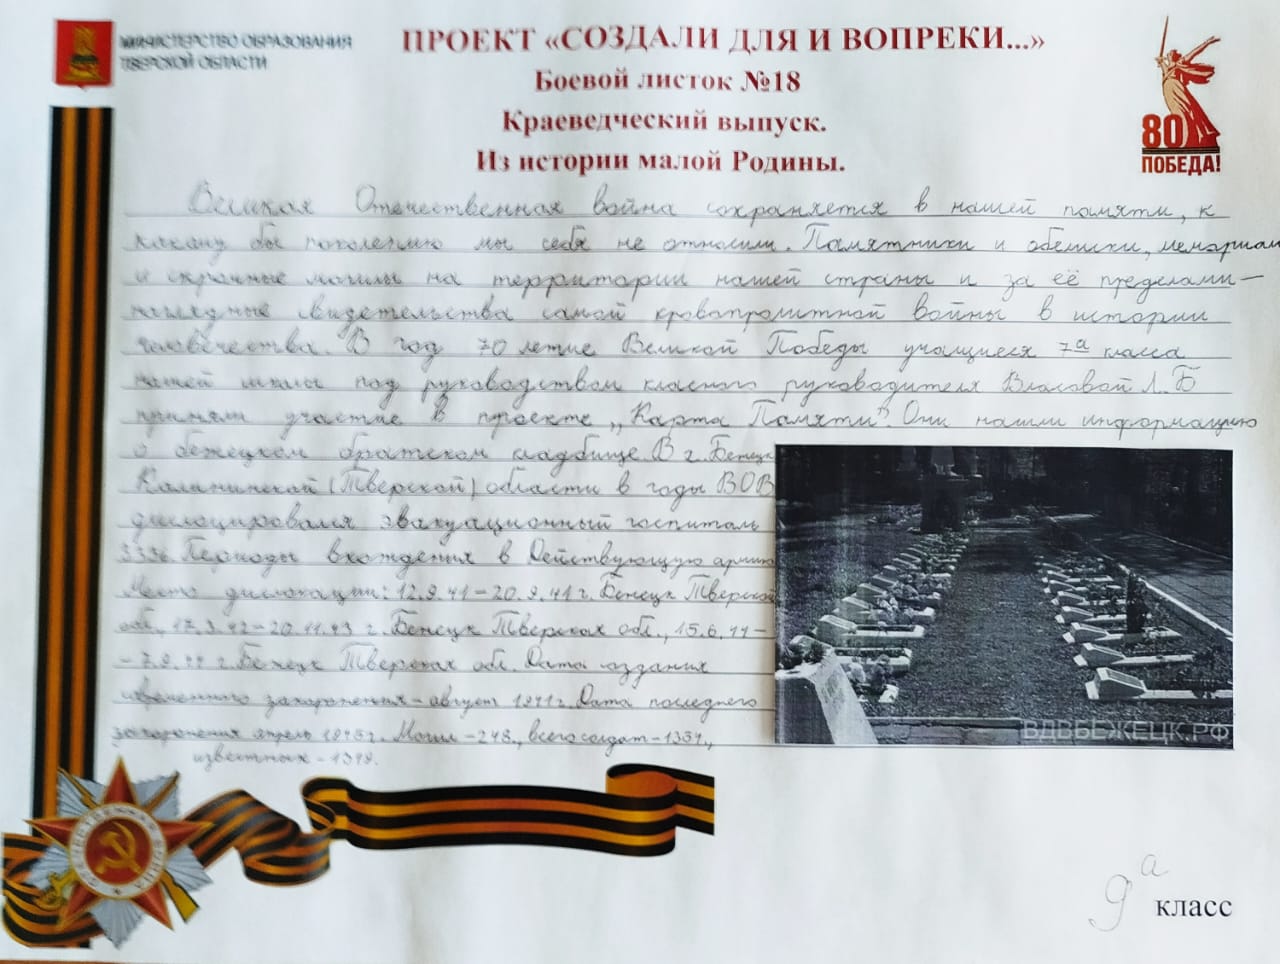 МИНИСТЕРСТВО ОБРАЗОВАНИЯ
ТВЕРСКОЙ ОБЛАСТИ
ПРОЕКТ «СОЗДАЛИ ДЛЯ И ВОПРЕКИ...»
Боевой листок №18
Краеведческий выпуск.
Из истории малой Родины.
80
ПОБЕДА!
Великая Отечественная война сохраняется в нашей памяти, к
какому бы поколению мы себя не относили. Памятники и обелиски, мемориал
и скромные могилы на территории нашей страны и за её пределами —
наглядные свидетельства самой кровопролитной войны в истории
человечества. В год 70 летие Великой Победы учащиеся 7а класса
нашей школы под руководством класного руководителя Власовой Л.Б
приняли участие в проекте „Карта Памяти". Они нашли информацию
о бежецком братском кладбище. В г. Бежецк
Калининской (Тверской) области в годы ВОВ
дислоцировался эвакуационный госпиталь
3336. Периоды вхождения в Действующую армию
Место дислокации: 12.9.41-20.9.41 г. Бежецк Тверской
обл., 17.3.42-20.11.43 г. Бежецк Тверская обл., 15.6.44-
- 7.9.44 г. Бежецк Тверская обл. Дата создания
современного захоронения - август 1941 г. Дата последнего
захоронения апрель 1945 г. Могил - 248., всего солдат - 1351.,
известных - 1348.
ВДВБЕЖЕЦК.РФ
9а класс